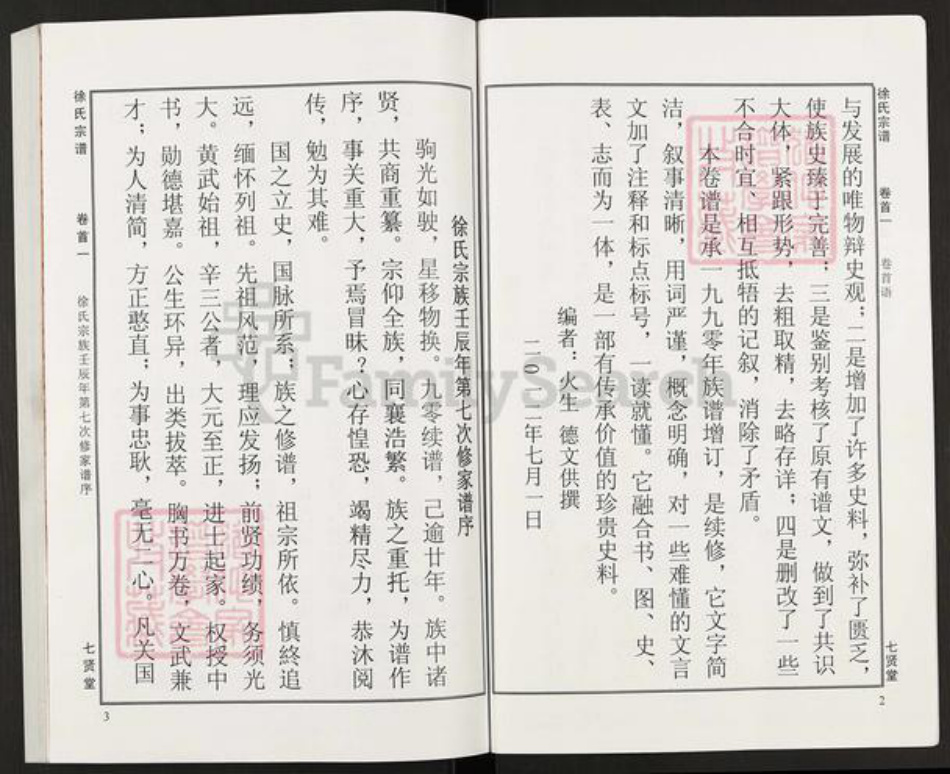 徐氏宗谱
卷首一
卷首语
与发展的唯物辩史观；二是增加了许多史料，弥补了匮乏，
使族史臻于完善；三是鉴别考核了原有谱文，做到了共识
大体，紧跟形势，去粗取精，去略存详；四是删改了一些
不合时宜、相互抵牾的记叙，消除了矛盾。
本卷谱是承一九九零年族谱增订，是续修，它文字简
洁，叙事清晰，用词严谨，概念明确，对一些难懂的文言
文加了注释和标点标号，一读就懂。它融合书、图、史、
表、志而为一体，是一部有传承价值的珍贵史料。
编者：火生 德文供撰
二〇一二年七月一日
七贤堂
2
徐氏宗族壬辰年第七次修家谱序
驹光如驶，星移物换。九零续谱，己逾廿年。族中诸
贤，共商重纂。宗仰全族，同襄浩繁。族之重托，为谱作
序，事关重大，予焉冒昧？心存惶恐，竭精尽力，恭沐阅
传，勉为其难。
国之立史，国脉所系；族之修谱，祖宗所依。慎終追
远，缅怀列祖。先祖风范，理应发扬；前贤功绩，务须光
大。黄武始祖，辛三公者，大元至正，进士起家。权授中
书，勋德堪嘉。公生环异，出类拔萃。胸书万卷，文武兼
才；为人清简，方正憨直；为事忠耿，毫无二心。凡关国
徐氏宗谱
卷首一
徐氏宗族壬辰年第七次修家谱序
七贤堂
3
FamilySearch